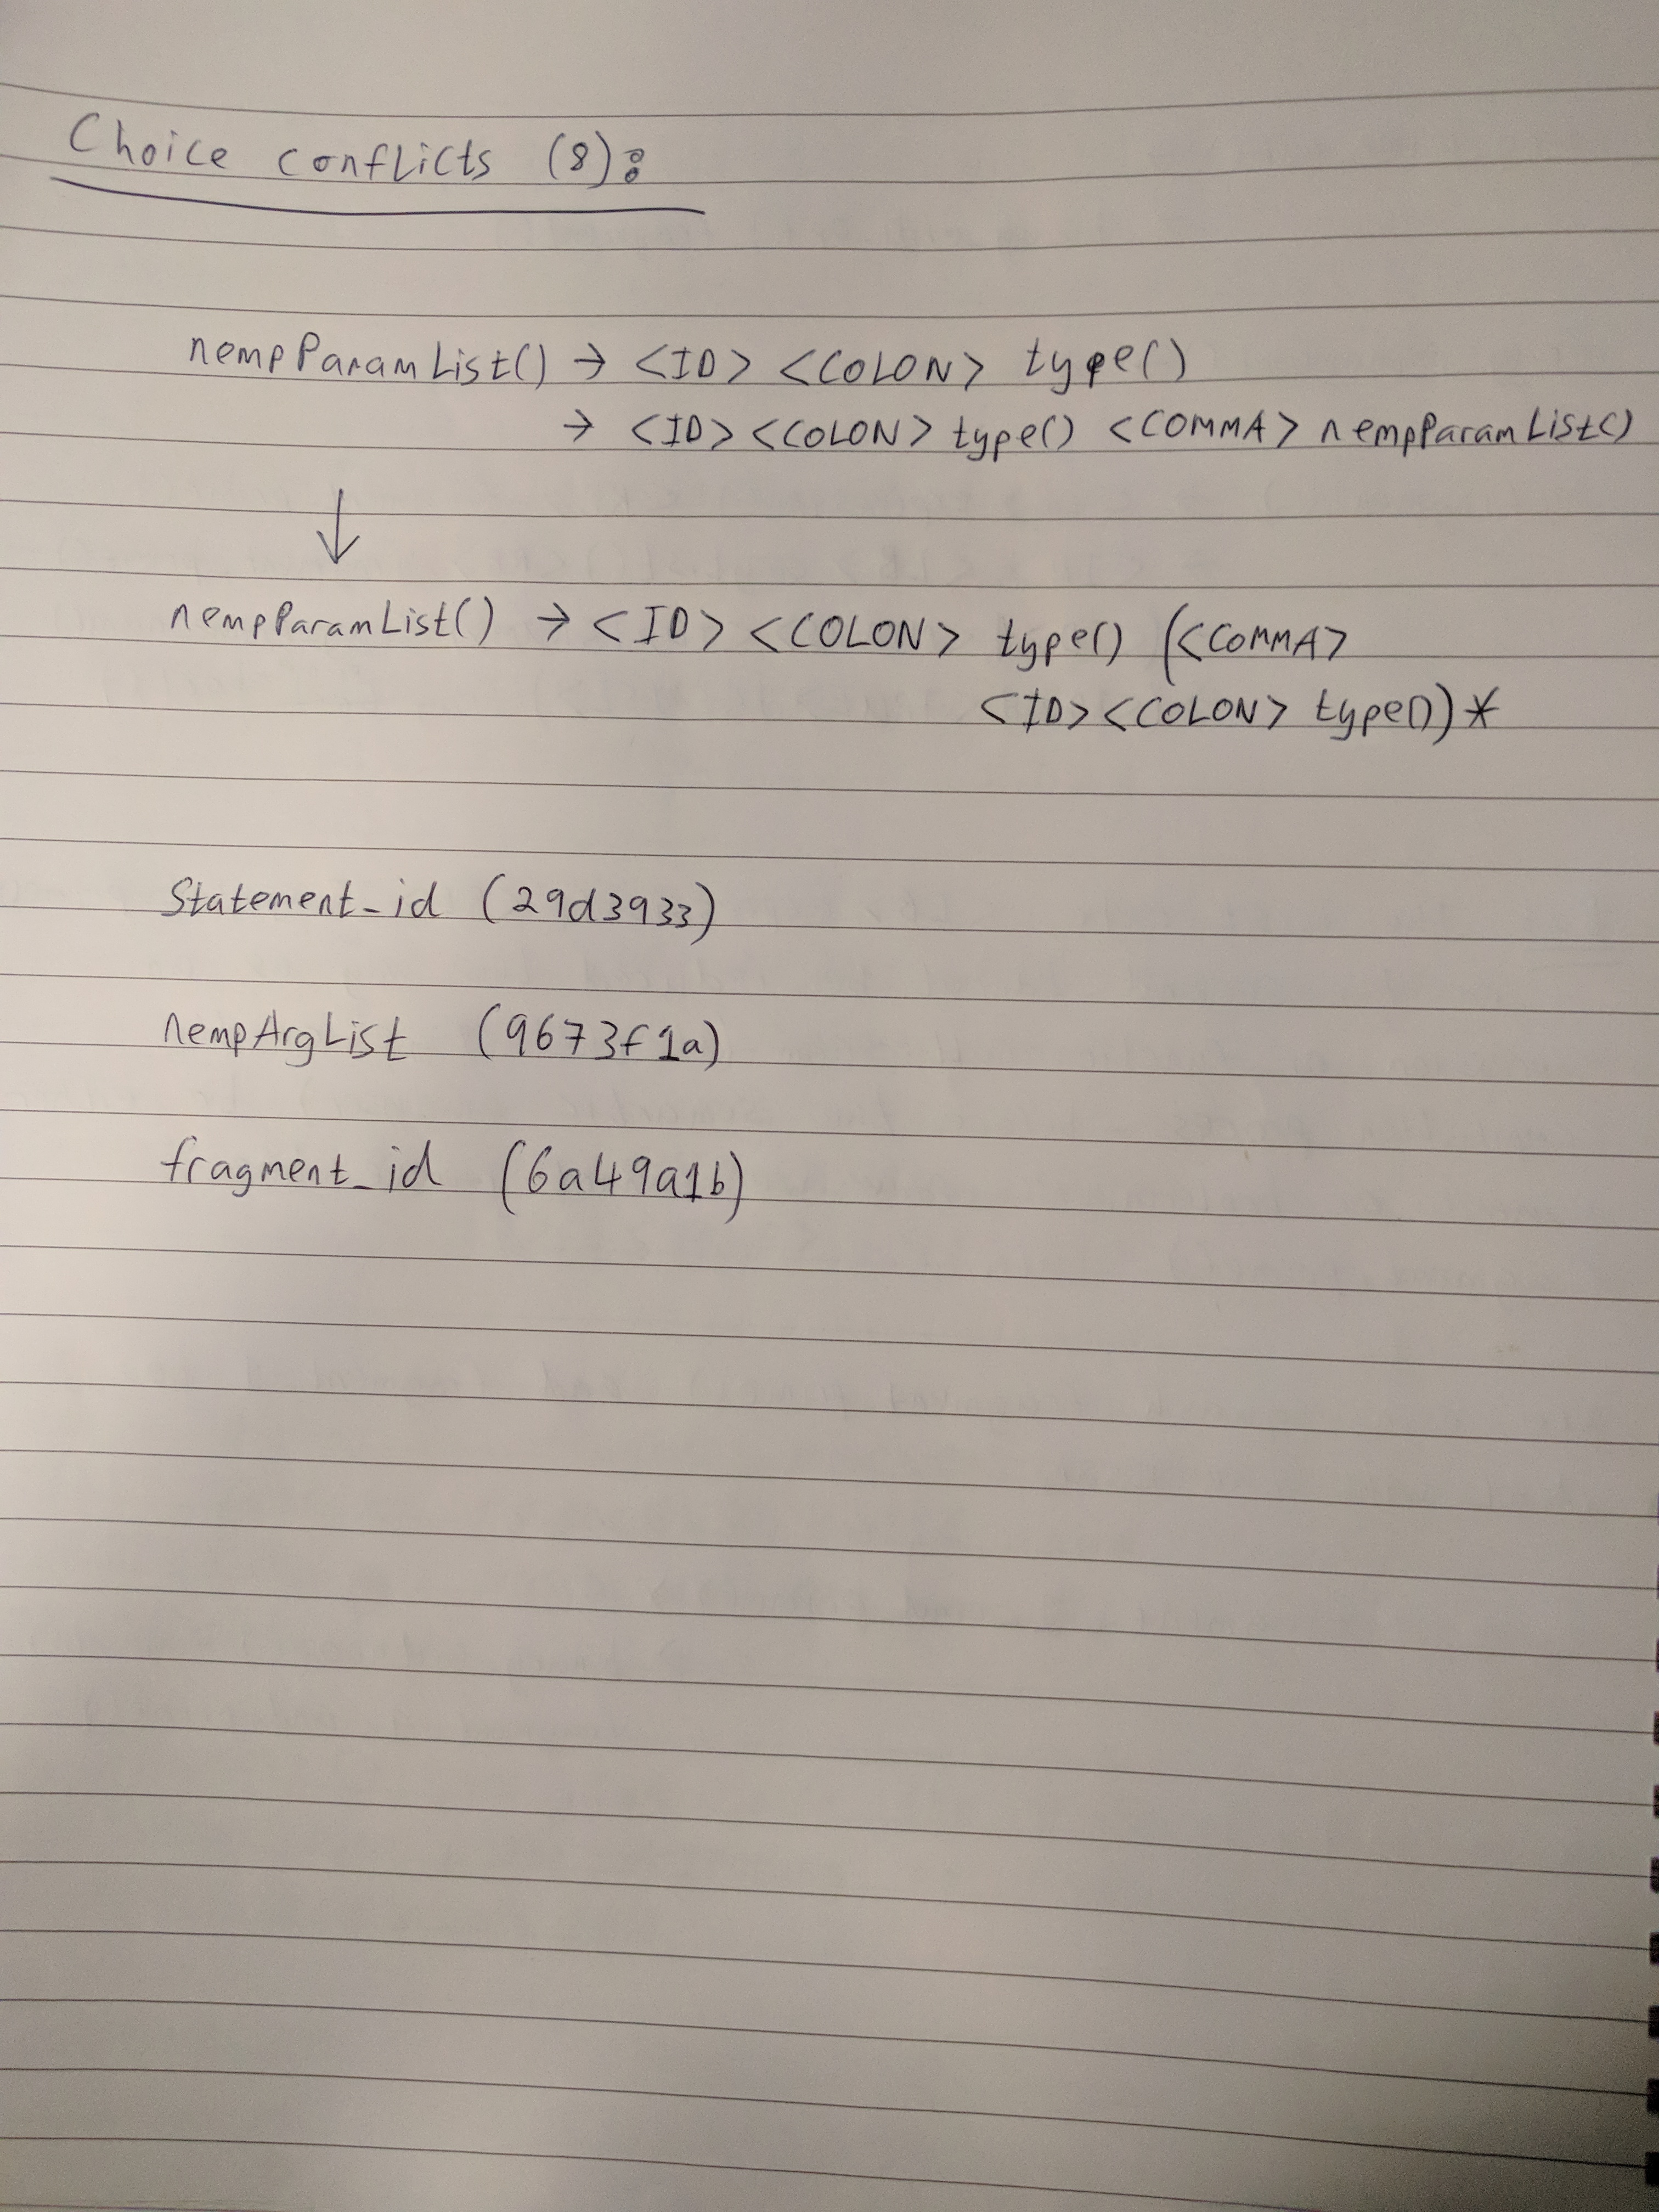 Choice conflicts (8):
nempParamList() → <ID> <COLON> type()
→ <ID> <COLON> type() <COMMA> nempParamList()
↓
nempParamList() → <ID> <COLON> type() (<COMMA>
<ID> <COLON> type())*
Statement_id (29d3933)
nempArgList (9673f1a)
fragment_id (6a49a1b)